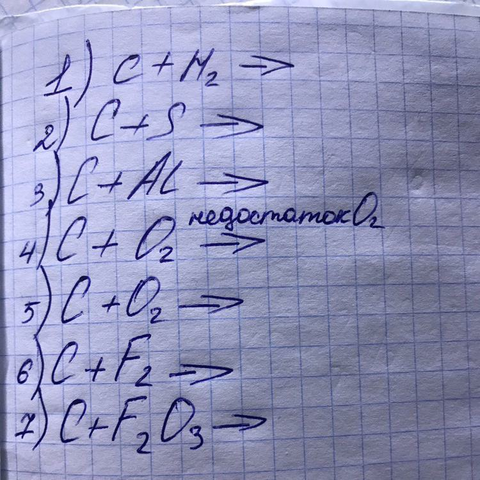 1) C + H₂ →
2) C + S →
3) C + Al →
4) C + O₂ недостаток O₂ →
5) C + O₂ →
6) C + F₂ →
7) C + F₂O₃ →